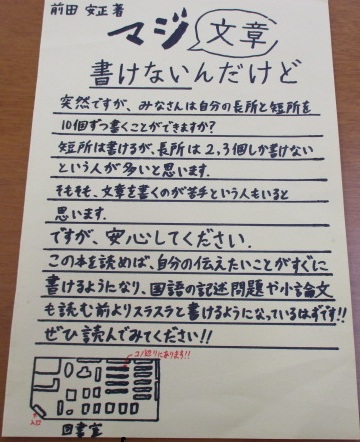 前田 安正 著
マジ 文章
書けないんだけど
突然ですが、みなさんは自分の長所と短所を
10個ずつ書くことができますか?
短所は書けるが、長所は2,3個しか書けない
という人が多いと思います。
そもそも、文章を書くのが苦手という人もいると
思います。
ですが、安心してください。
この本を読めば、自分の伝えたいことがすぐに
書けるようになり、国語の記述問題や小論文
も読む前よりスラスラと書けるようになっているはずです!!
ぜひ読んでみてください!!
コノ辺りにあります!!
入口
図書室